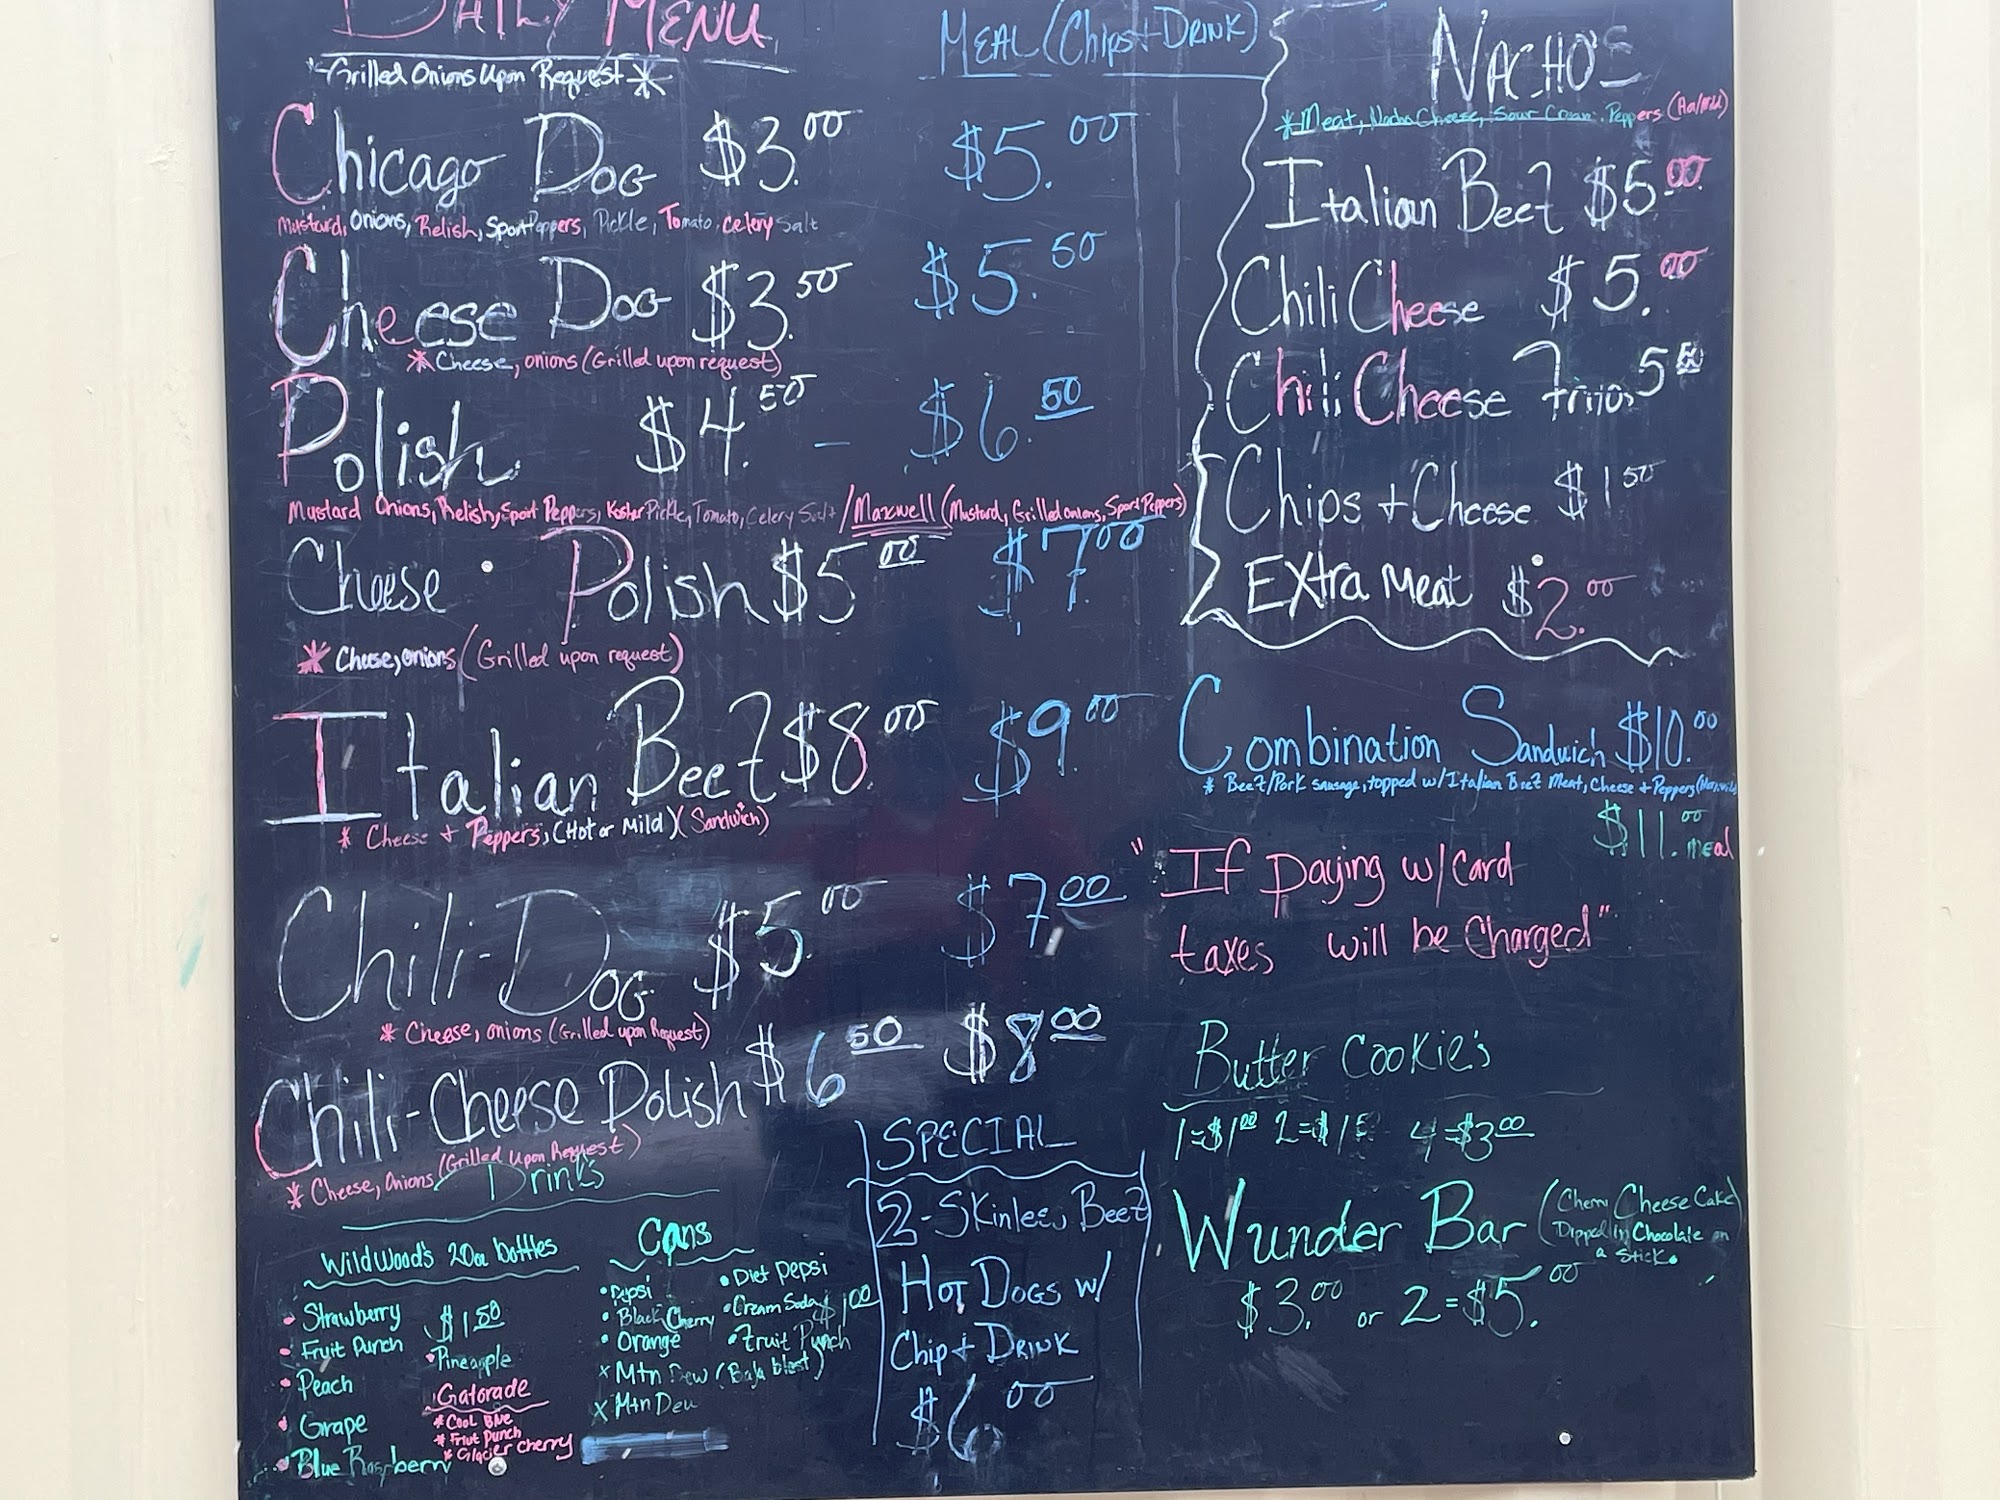 DAILY MENU
"Grilled Onions Upon Request*
MEAL (Chips + DRINK)
Chicago Dog $3.00 $5.00
Mustard, Onions, Relish, Sport Peppers, Pickle, Tomato, Celery Salt
Cheese Dog $3.50 $5.50
* Cheese, onions (Grilled upon request)
Polish $4.50 - $6.50
Mustard Onions, Relish, Sport Peppers, Kosher Pickle, Tomato, Celery Salt / Maxwell (Mustard, Grilled onions, Sport Peppers)
Cheese Polish $5.00 $7.00
* Cheese, onions (Grilled upon request)
Italian Beef $8.00 $9.00
* Cheese + Peppers, (Hot or Mild) (Sandwich)
Chili-Dog $5.00 $7.00
* Cheese, onions (Grilled upon Request)
Chili-Cheese Polish $6.50 $8.00
* Cheese, Onions (Grilled Upon Request)
Drink's
WildWood's 20oz bottles
• Strawberry $1.50
• Fruit Punch
• Pineapple
• Peach
• Grape
• Blue Raspberry
Gatorade
* Cool Blue
* Friut Punch
* Glacier Cherry
Cans
• Pepsi • Diet Pepsi
• Black Cherry • Cream Soda $1.00
• Orange • Fruit Punch
x Mtn Dew (Baja blast)
x Mtn Dew
SPECIAL
2-Skinless Beef
HOT DOGS w/
Chip + DRINK
$6.00
NACHO'S
* Meat, Nacho Cheese, Sour Cream, Peppers
Italian Beef $5.00
Chili Cheese $5.00
Chili Cheese Fritos 5.50
Chips + Cheese $1.50
EXtra Meat $2.00
Combination Sandwich $10.00
* Beef/Pork sausage, topped w/Italian Beef Meat, Cheese + Peppers
$11.00 meal
"If paying w/Card
taxes will be Charged"
Butter Cookie's
1=$1.00 4=$3.00
Wunder Bar (Cherry Cheese Cake
Dipped in Chocolate on
a stick.
$3.00 or 2=$5.00